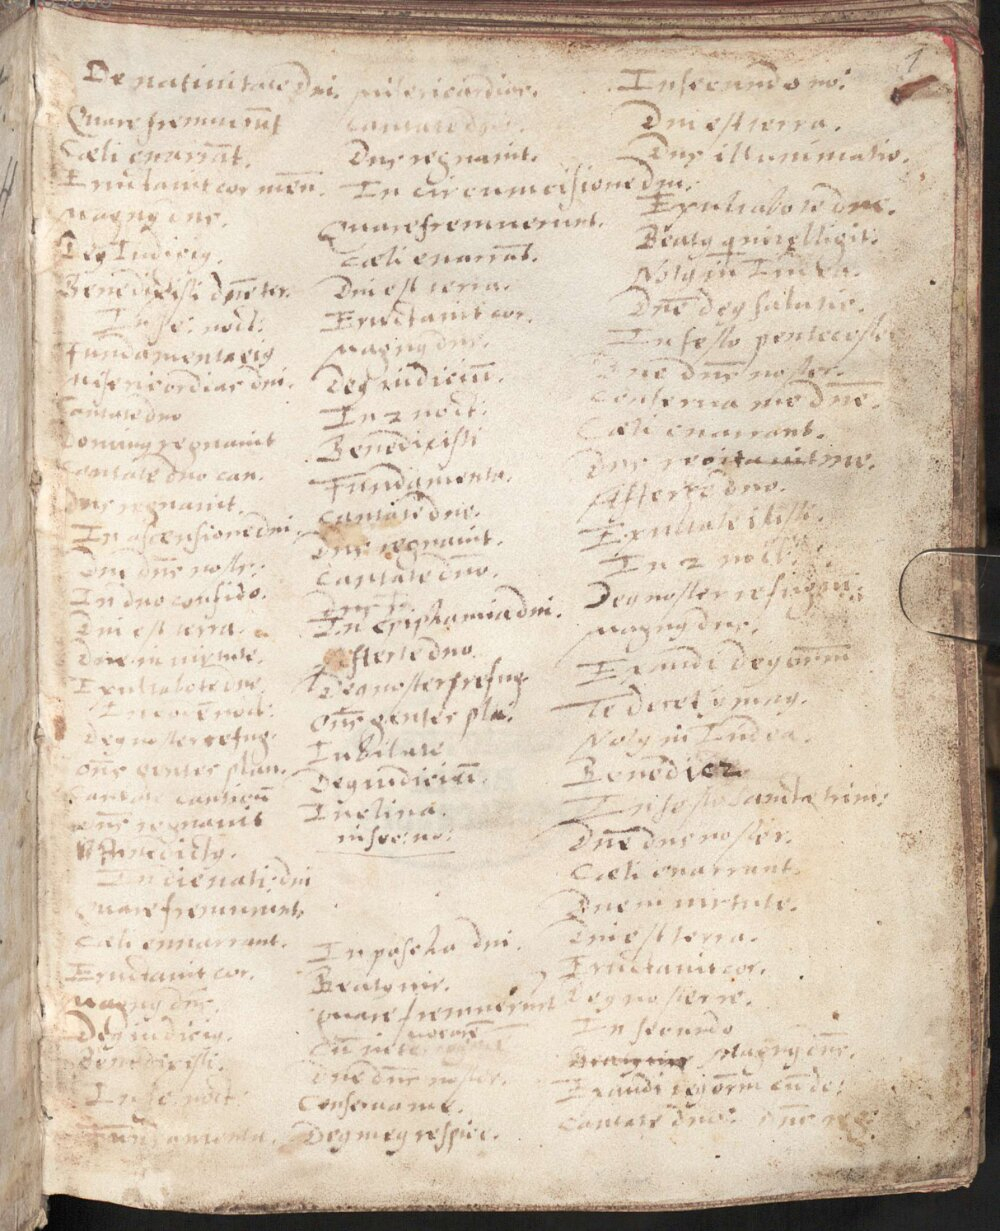 1
De nativitate dni.
Quare fremuerūt
Cæli enarrāt.
Eructavit cor meū.
Magnꝰ dns.
Deꝰ Iudiciū.
Benedixisti dn̄e ter.
In se: noct:
Fundamenta eiꝰ
Misericordias dni.
Cantate dno
Dominꝰ regnavit
Cantate dno can.
Dns regnavit.
In ascensione dni
Dn̄e dn̄s nostr.
In dno confido.
Dni est terra.
Dn̄e in virtute.
Exultabo te dn̄e.
In noct:
Deꝰ noster refug.
Oēs gentes plau.
Cantate canticū
Dn̄s regnavit
Benedictꝰ.
In die nati: dni
Quare fremuerunt.
Cæli ennarrant.
Eructavit cor.
Magnꝰ dn̄s.
Deꝰ iudiciū.
Benedixisti.
In se. noct:
Fundamenta.
Misericordias.
Cantate dno.
Dn̄s regnavit.
In circumcisione dni.
Quare fremuerunt.
Cæli enarrāt.
Dni est terra.
Eructavit cor.
Magnꝰ dns.
Deꝰ iudiciū.
In 2 noct:
Benedixisti
Fundamenta.
Cantate dno.
Dns regnavit.
Cantate dno.
In Epiphania dni.
Afferte dno
Deꝰ noster refug
Oēs gentes pla.
Iubilate
Deꝰ iudiciū.
Inclina.
in sec: no:
In pascha dni.
Beatꝰ vir.
Quare fremuerunt
Cū invocarē
Dn̄e dn̄s noster.
Conserva me.
Deꝰ meꝰ respice.
In secundo no:
Dni est terra.
Dns illuminatio.
Exultabo te dn̄e.
Beatꝰ qui intelligit.
Notꝰ in Iudea.
Dn̄e deꝰ salutis.
In festo pentecost
Dn̄e dn̄s noster.
Conserva me dn̄e.
Cæli enarrant.
Dns me.
Afferte dno.
Exultate iusti.
In 2 noct:
Deꝰ noster refugiū.
Magnꝰ dn̄s.
Exaudi deꝰ
Te decet ymnꝰ.
Notꝰ in Iudea.
Benedic 2
In festo sanctæ trini:
Dn̄e dn̄s noster.
Cæli enarrant.
Dn̄e in virtute.
Dni est terra.
Eructavit cor.
Deꝰ noster re.
In secundo
Magnꝰ dn̄s.
Cantate dno: Dn̄s reg: